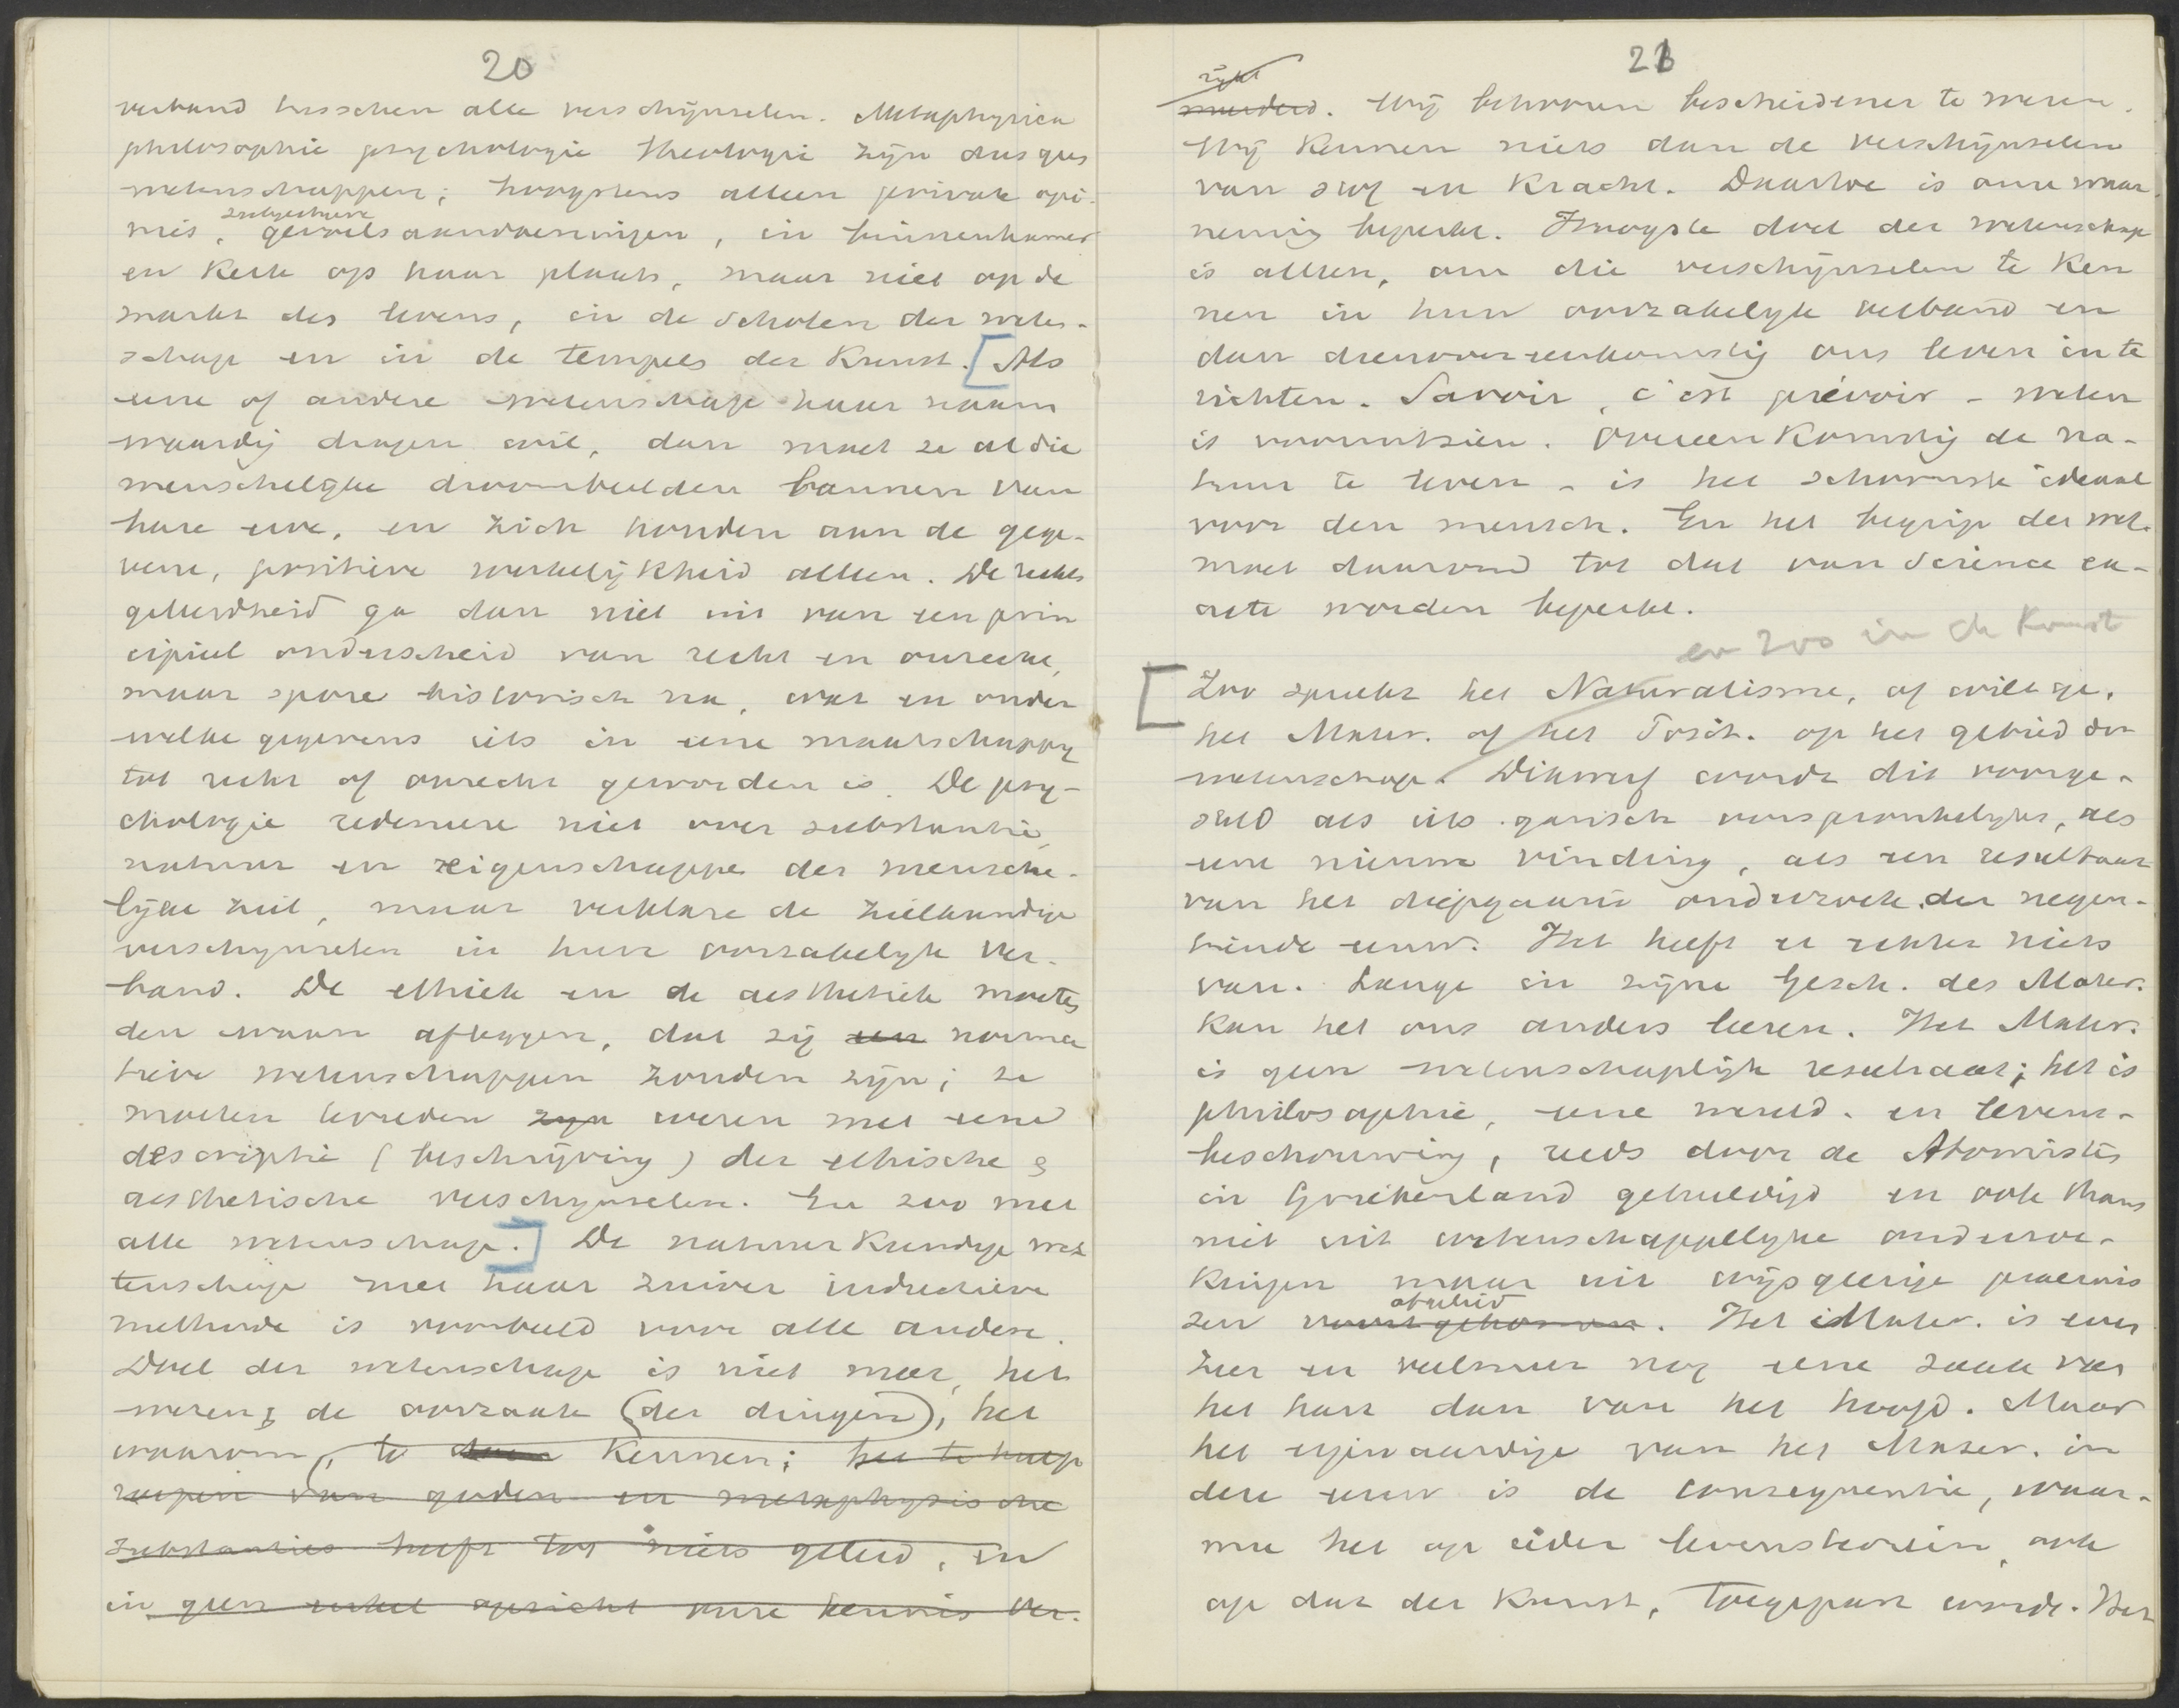 20
verband tusschen alle verschijnselen. Metaphysica
philosophie psychologie theologie zijn dus geen
wetenschappen; hoogstens alleen private opi-
nies, subjectieve gevoelsaandoeningen, in binnenkamer
en Kerk op haar plaats, maar niet op de
markt des levens, in de scholen der weten-
schap en in de tempels der Kunst. [Als
eene of andere wetenschap haar naam
waardig dragen wil, dan moet ze al die
menschelijke droombeelden bannen van
hare erve, en zich houden aan de gege-
vene, positieve werkelijkheid alleen. De rechts
geleerdheid ga dan niet uit van een prin
cipieel onderscheid van recht en onrecht,
maar spore historisch na, wat en onder
welke gegevens iets in eene maatschappij
tot recht of onrecht geworden is. De psy-
chologie redeneere niet over substantie,
natuur en eigenschappen der mensche-
lijke ziel, maar verklare de zielkundige
verschijnselen in hun oorzakelijk ver-
band. De ethiek en de aesthetiek moeten
den waan afleggen, dat zij een norma
tieve wetenschappen zouden zijn; ze
moeten tevreden zijn wezen met eene
descriptie (beschrijving) der ethische &
aesthetische verschijnselen. En zoo met
alle wetenschap.] De natuurkundige we
tenschap met haar zuiver inductieve
methode is voorbeeld voor alle andere.
Doel der wetenschap is niet meer, het
wezen, de oorzaak (der dingen), het
waarom, te kennen; het te hulp
roepen van goden en metaphysische
substanties heeft tot niets geleid, en
in geen enkel opzicht onze kennis ver-
21
rijkt
meerderd. Wij behooren bescheidener te wezen.
Wij kennen niets dan de verschijnselen
van stof en Kracht. Daartoe is onze waar-
neming beperkt. Hoogste doel der wetenschap
is alleen, om die verschijnselen te Ken
nen in hun oorzakelijk verband en
dan dienovereenkomstig ons leven in te
richten. Savoir, c'est prévoir - weten
is vooruitzien. Overeenkomstig de na-
tuur te leven - is het schoonste ideaal
voor den mensch. En het begrip der wet.
moet daarom tot dat van Science ex-
acte worden beperkt.
en zoo in de Kunst
[Zoo spreekt het Naturalisme, of wilt ge,
het Mater. of het Posit. op het gebied der
wetenschap. Dikwerf wordt dit voorge-
steld als iets gansch oorspronkelijks, als
eene nieuwe vinding, als een resultaat
van het diepgaand onderzoek der negen-
tiende eeuw. Het heeft er echter niets
van. Lange in zijne Gesch. des Mater.
kan het ons anders leeren. Het Mater.
is geen wetenschaplijk resultaat; het is
philosophie, eene wereld- en levens-
beschouwing, reeds door de Atomisten
in Griekenland gehuldigd en ook thans
niet uit wetenschappelijke onderzoe-
kingen maar uit wijsgeerige praemis
sen voortgekomen afgeleid. Het Mater. is even
zeer en veelmeer nog eene zaak van
het hart dan van het hoofd. Maar
het eigenaardige van het Mater. in
deze eeuw is de consequentie, waar-
mee het op ieder levensterrein, ook
op dat der Kunst, toegepast wordt. Het